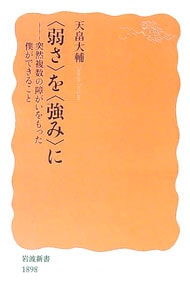 天畠大輔
〈弱さ〉を〈強み〉に
――突然複数の障がいをもった
僕ができること
岩波新書
1898